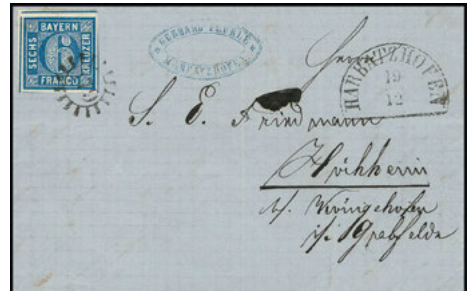 BAYERN
SECHS 6 KREUZER
FRANCO
HARBATZHOFEN
19
12
Herrn
S. E. Friedmann
Höchheim
b/. Königshofen
i/. Grabfelde